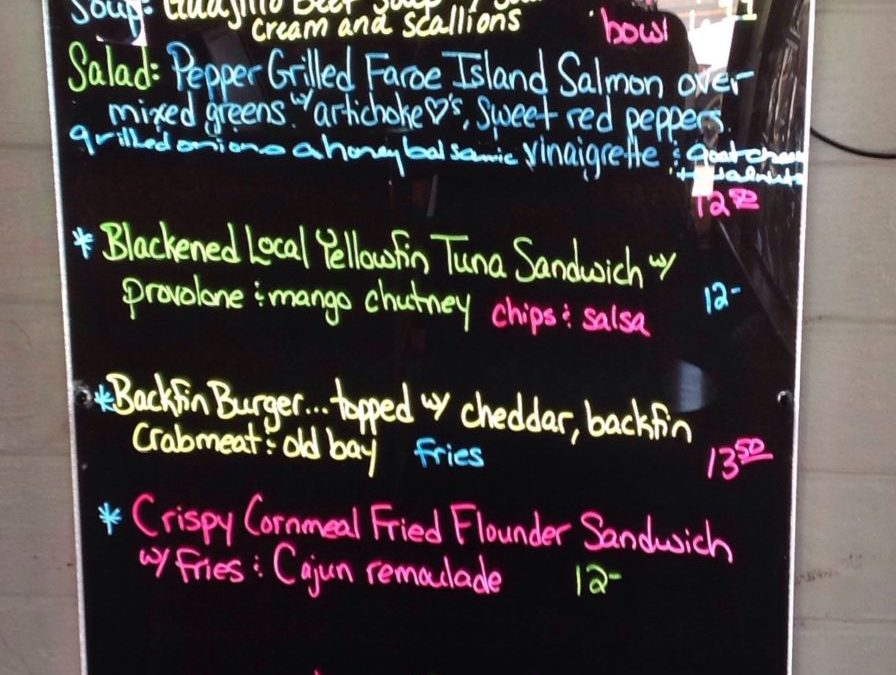 Soup: Guajillo Beef Soup w/
cream and scallions bowl
Salad: Pepper Grilled Faroe Island Salmon over
mixed greens w/ artichoke ♡'s, sweet red peppers
grilled onions a honey balsamic vinaigrette & goat cheese
+ walnuts
12 50
* Blackened Local Yellowfin Tuna Sandwich w/
provolone & mango chutney chips & salsa 12-
* Backfin Burger... topped w/ cheddar, backfin
Crabmeat & old bay fries 13 50
* Crispy Cornmeal Fried Flounder Sandwich
w/ fries & Cajun remoulade 12-